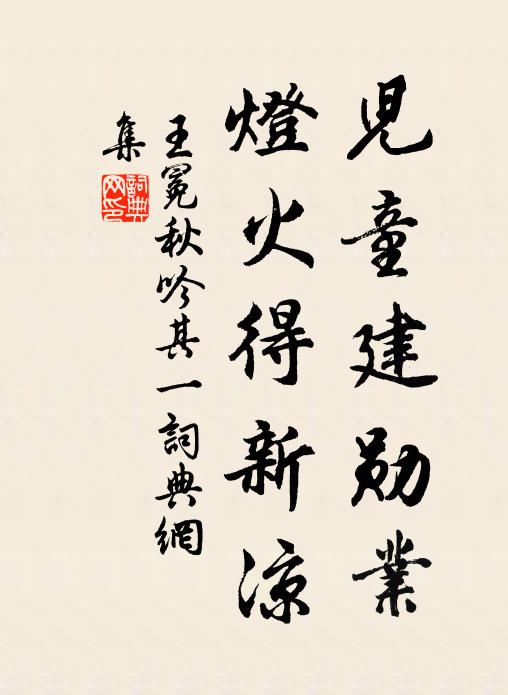 児童建勛業
燈火得新涼
王冕秋吟其一詞典網
集
詞典
网印